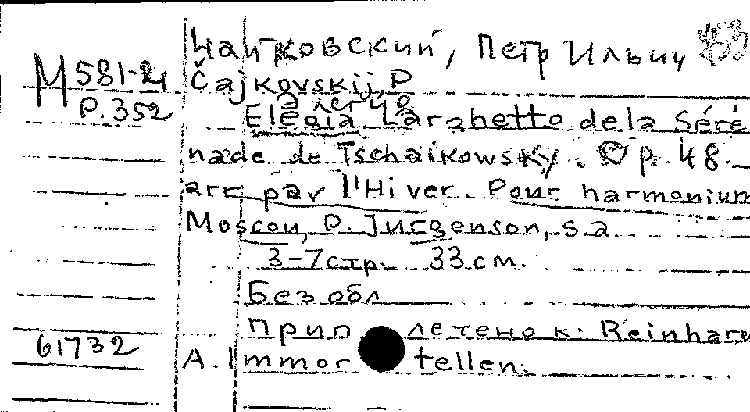 Чайковский, Петр Ильич
M 581-2
P. 352
Čajkovskij, P
Elegia Larghetto de la Séré
nade de Tschaikowsky. Op. 48.
arr par l'Hiver. Pour harmonium
Moscou, P. Jurgenson, s.a.
3-7 стр. 33 см.
Без обл
Приплетено к: Reinhard
61732
A. Immortellen.